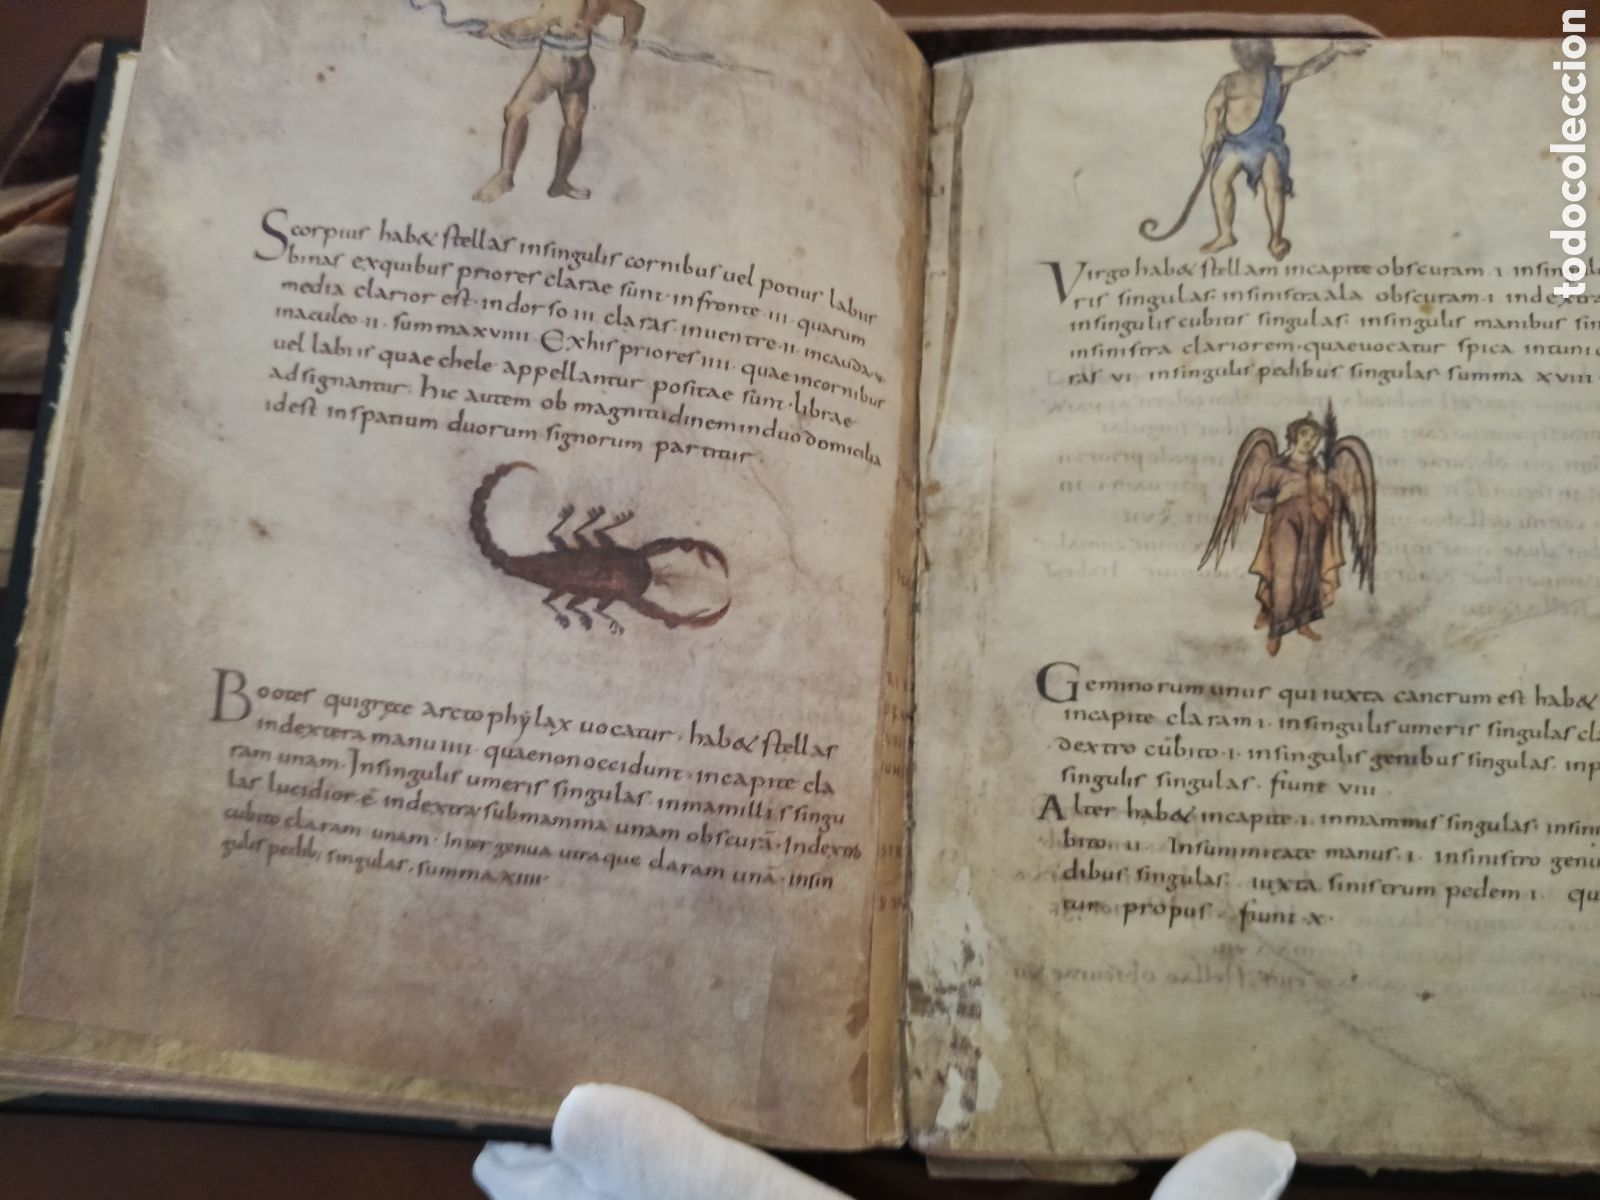 Scorpius hab& stellas insingulis cornibus uel potius labus
binas exquibus priores clarae sunt · infronte · III · quarum
media clarior est · indorso III claras · inuentre · II · incauda · V ·
inaculeo · II · summa XVIIII · Exhis priores IIII · quae incornibus
uel labiis quae chele appellantur positae sunt · librae
adsignantur · hic autem ob magnitudinem induo domicilia
idest inspatium duorum signorum partitus ·
Bootes quigrece arctophylax uocatur · hab& stellas
indextera manu IIII · quaenonoccidunt · incapite cla
ram unam · Insingulis umeris singulas · inmamillis singu
las lucidior · ē indextra · submamma unam obscurā · Indextro
cubito claram unam · Inter genua utraque claram unā · insin
gulis pedib; singulas · summa XIIII ·
Virgo hab& stellam incapite obscuram · I · insingulis
ris singulas · insinistra ala obscuram · I · indextra
insingulis cubitis singulas · insingulis manibus sin
insinistra clariorem · quaeuocatur spica intuni
ras VI · insingulis pedibus singulas · summa XVIII
Geminorum unus qui iuxta cancrum est hab&
incapite claram I · insingulis umeris singulas cla
dextro cubito · I · insingulis genibus singulas · inp
singulis singulas · fiunt VIII ·
Alter hab& incapite · I · inmammis singulas · insini
bito · II · Insummitate manus · I · insinistro genu
dibus singulas · iuxta sinistrum pedem I · qu
tur propus · fiunt X ·
todocoleccion